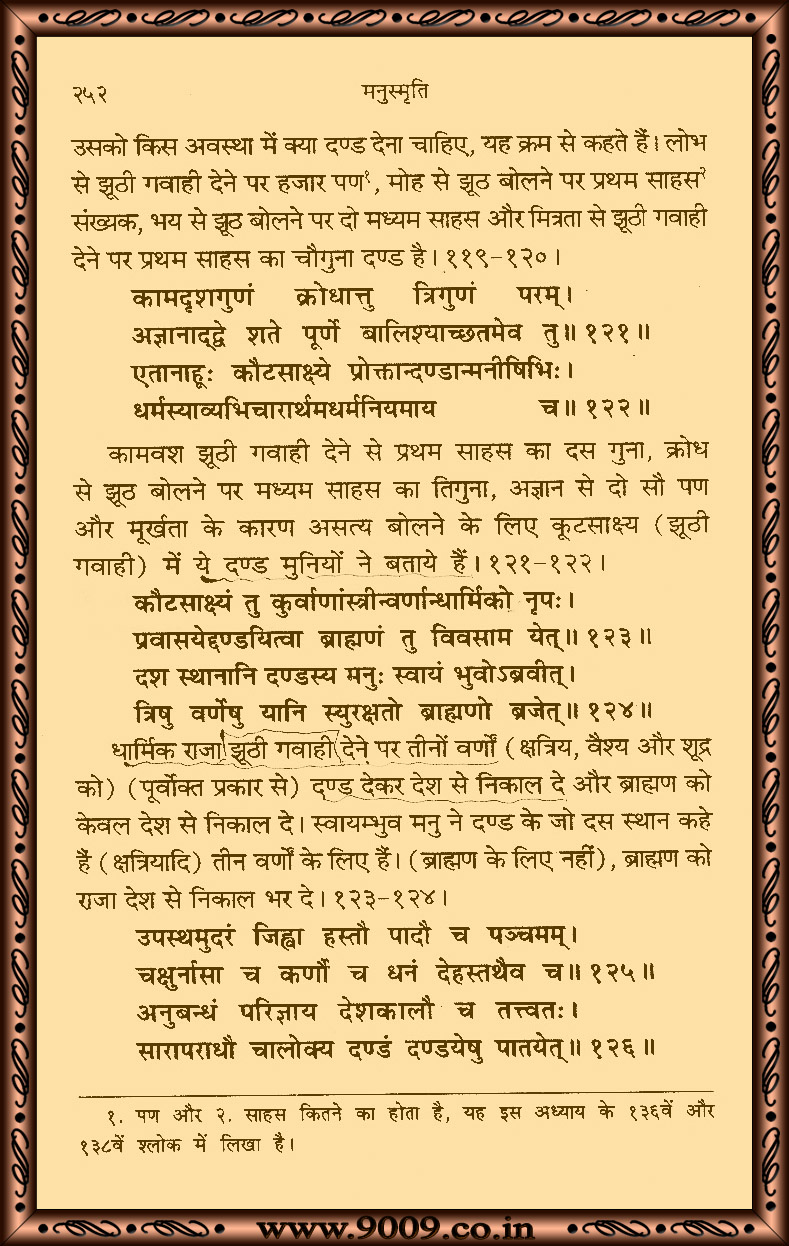 २५२ मनुस्मृति
उसको किस अवस्था में क्या दण्ड देना चाहिए, यह क्रम से कहते हैं। लोभ
से झूठी गवाही देने पर हजार पण¹, मोह से झूठ बोलने पर प्रथम साहस²
संख्यक, भय से झूठ बोलने पर दो मध्यम साहस और मित्रता से झूठी गवाही
देने पर प्रथम साहस का चौगुना दण्ड है। ११९-१२०।
कामदृशगुणं क्रोधात्तु त्रिगुणं परम्।
अज्ञानाद्द्वे शते पूर्णे बालिश्याच्छतमेव तु॥ १२१॥
एतानाहूः कौटसाक्ष्ये प्रोक्तान्दण्डान्मनीषिभिः।
धर्मस्याव्यभिचारार्थमधर्मनियमाय च॥ १२२॥
कामवश झूठी गवाही देने से प्रथम साहस का दस गुना, क्रोध
से झूठ बोलने पर मध्यम साहस का तिगुना, अज्ञान से दो सौ पण
और मूर्खता के कारण असत्य बोलने के लिए कूटसाक्ष्य (झूठी
गवाही) में ये दण्ड मुनियों ने बताये हैं। १२१-१२२।
कौटसाक्ष्यं तु कुर्वाणांस्त्रीन्वर्णान्धार्मिको नृपः।
प्रवासयेद्दण्डयित्वा ब्राह्मणं तु विवसाम येत्॥ १२३॥
दश स्थानानि दण्डस्य मनुः स्वायं भुवोऽब्रवीत्।
त्रिषु वर्णेषु यानि स्युरक्षतो ब्राह्मणो ब्रजेत्॥ १२४॥
धार्मिक राजा झूठी गवाही देने पर तीनों वर्णों (क्षत्रिय, वैश्य और शूद्र
को) (पूर्वोक्त प्रकार से) दण्ड देकर देश से निकाल दे और ब्राह्मण को
केवल देश से निकाल दे। स्वायम्भुव मनु ने दण्ड के जो दस स्थान कहे
हैं (क्षत्रियादि) तीन वर्णों के लिए हैं। (ब्राह्मण के लिए नहीं), ब्राह्मण को
राजा देश से निकाल भर दे। १२३-१२४।
उपस्थमुदरं जिह्वा हस्तौ पादौ च पञ्चमम्।
चक्षुर्नासा च कर्णौ च धनं देहस्तथैव च॥ १२५॥
अनुबन्धं परिज्ञाय देशकालौ च तत्त्वतः।
सारापराधौ चालोक्य दण्डं दण्डयेषु पातयेत्॥ १२६॥
१. पण और २. साहस कितने का होता है, यह इस अध्याय के १३६वें और
१३८वें श्लोक में लिखा है।
www.9009.co.in